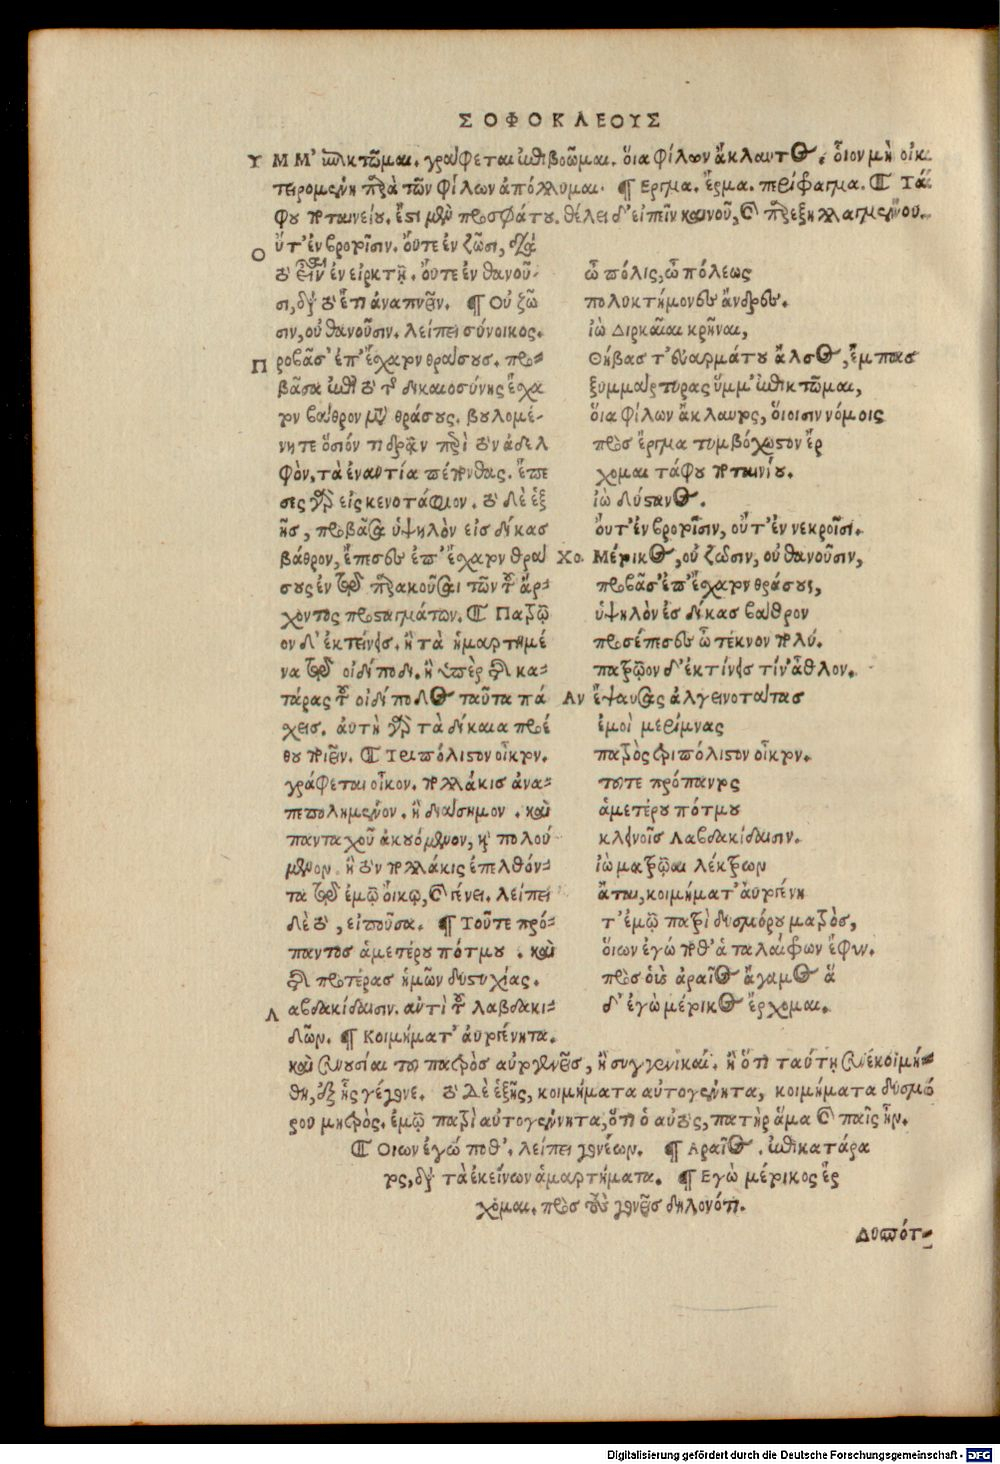 ΣΟΦΟΚΛΕΟΥΣ
ΥΜΜ' ἐπικτῶμαι. γράφεται ἐπιβοῶμαι. ὅια φίλων ἄκλαυτος. ὅιον μὴ οἰκ
τειρομένη παρὰ τῶν φίλων ἀπόλλυμαι. ¶ Ερμα. ἕρμα. περίφραγμα. ¶ Τά
φου ποταινείου. ἔστι μὲν προσφάτου. θέλει δ' εἰπεῖν καινοῦ, καὶ παρεξηλλαγμένου.
Οὔτ' ἐν βροτοῖσιν. ὄυτε ἐν ζῶσι, διὰ
τὸ εἶναι ἐν εἱρκτῇ. ὄυτε ἐν θανοῦ-
σι, διὰ τὸ ἔτι ἀναπνεῖν. ¶ Οὐ ζῶ
σιν, οὐ θανοῦσιν. λείπει σύνοικος.
Προβᾶσ' ἐπ' ἔσχατον θράσους. προ-
βᾶσα ἐπὶ τὸ τῆς δικαιοσύνης ἔσχα
τον βάθρον μετὰ θράσους. βουλομέ-
νη τε ὅσιόν τι δρᾶν περὶ τὸν ἀδελ
φὸν, τὰ ἐναντία πέπονθας. ἔπε
σες γὰρ εἰς κενοτάφιον. τὸ δὲ ἑξ
ῆς, προβᾶσα ὑψηλὸν εἰσ δίκας
βάθρον, ἔπεσες ἐπ' ἔσχατον θρά
σους ἐν τῷ παρακοῦσαι τῶν τοῦ ἄρ-
χοντος προσταγμάτων. ¶ Πατρῷ
ον δ' ἐκτείνεις. ἢ τὰ ἡμαρτημέ
να τῷ οἰδίποδι. ἢ ὑπὲρ τῆς κα-
τάρας τοῦ οἰδίποδος ταῦτα πά
χεις. ἀυτὴ γὰρ τὰ δίκαια προέ
θου ποιεῖν. ¶ Τριπόλιστον οἶκτον.
γράφεται οἶκον. πολλάκισ ἀνα-
πεπολημένον. ἢ διάσημον. καὶ
πανταχοῦ ἀκουόμενον, καὶ πολού
μενον. ἢ τὸν πολλάκις ἐπελθόν-
τα τῷ ἐμῷ οἴκῳ, καὶ γένει. λείπει
δὲ τὸ, εἰποῦσα. ¶ Τοῦτε πρό-
παντος ἁμετέρου πότμου. καὶ
τῆς προτέρας ἡμῶν δυστυχίας.
Λαβδακίδαισιν. αὐτὶ τοῦ λαβδακι-
δῶν. ¶ Κοιμήματ' ἀυτογένητα.
ὦ πόλις, ὦ πόλεως
πολυκτήμονες ἄνδρες.
ἰὼ Διρκαῖαι κρῆναι,
Θήβας τ' ἐυαρμάτου ἄλσος, ἔμπας
ξυμμάρτυρας ὔμμ' ἐπικτῶμαι,
ὅια φίλων ἄκλαυτος, ὅιοισιν νόμοις
πρὸς ἕργμα τυμβόχωστον ἔρ
χομαι τάφου ποταινίου.
ἰὼ δύστανος.
ὄυτ' ἐν βροτοῖσιν, οὔτ' ἐν νεκροῖσι.
Χο. Μέτικος, οὐ ζῶσιν, οὐ θανοῦσιν,
προβᾶσ' ἐπ' ἔσχατον θράσους,
ὑψηλὸν ἐς δίκας βάθρον
προσέπεσες ὦ τέκνον πολύ.
πατρῷον δ' ἐκτίνεις τίν' ἆθλον.
Αν ἔψαυσας ἀλγεινοτάτας
ἐμοὶ μερίμνας
πατρὸς τριπόλιστον οἶκτον.
τοῦτε πρόπαντος
ἁμετέρου πότμου
κλεινοῖς Λαβδακίδαισιν.
ἰὼ ματρῷαι λέκτρων
ἄται, κοιμήματ' ἀυτογένη
τ' ἐμῷ πατρὶ δυσμόρου ματρὸς,
ὅιων ἐγώ ποθ' ἁ ταλαίφρων ἔφυν.
πρὸς οὓς ἀραῖος ἄγαμος ἅ
δ' ἐγὼ μέτικος ἔρχομαι.
καὶ συνουσίαι τοῦ πατρὸς αὐτογενεῖς, ἢ συγγενικαί. ἢ ὅτι ταύτῃ συνεκοιμή-
θη, ἐξ ἧς γέγονε. τὸ δὲ ἑξῆς, κοιμήματα αὐτογένητα, κοιμήματα δυσμό
ρου μητρὸς. ἐμῷ πατρὶ αὐτογέννητα, ὅτι ὁ αὐτὸς, πατὴρ ἅμα καὶ παῖς ἦν.
¶ Οιων ἐγώ ποθ'. λείπει γονέων. ¶ Αραῖος. ἐπικατάρα
τος, διὰ τὰ ἐκείνων ἁμαρτήματα. ¶ Εγὼ μέτικος ἔρ
χομαι. πρὸς τοὺς γονεῖς δηλονότι.
Δυσπότ-
Digitalisierung gefördert durch die Deutsche Forschungsgemeinschaft - DFG